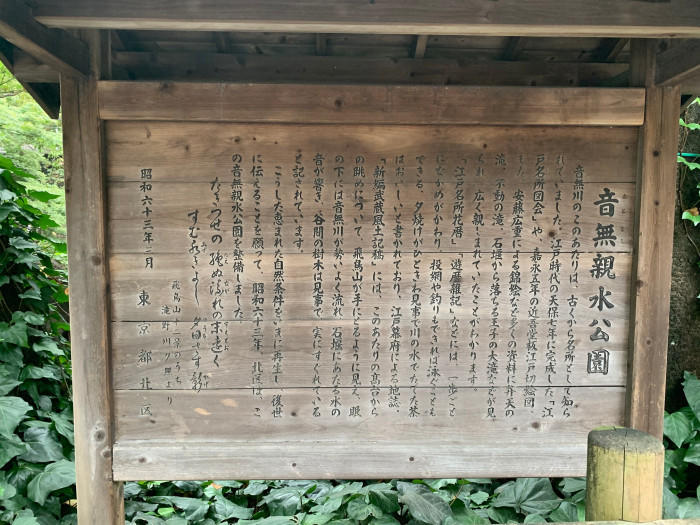 音無親水公園
音無川のこのあたりは、古くから名所として知ら
れていました。江戸時代の天保七年に完成した「江
戸名所図会」や、嘉永五年の近吾堂板江戸切絵図、
また、安藤広重による錦絵など多くの資料に弁天の
滝、不動の滝、石堰から落ちる王子の大滝などが見
られ、広く親しまれていたことがわかります。
「江戸名所花暦」「遊歴雑記」などには、一歩ごと
にながめがかわり、投網や釣りもできれば泳ぐことも
できる、夕焼けがひときわ見事で川の水でたてた茶
はおいしいと書かれており、江戸幕府による地誌、
「新編武蔵風土記稿」には、このあたりの高台から
の眺めについて、飛鳥山が手にとるように見え、眼
の下には音無川が勢いよく流れ、石堰にあたる水の
音が響き、谷間の樹木は見事で、実にすぐれている
と記されています。
こうした恵まれた自然条件をいまに再生し、後世
に伝えることを願って、昭和六十三年、北区は、こ
の音無親水公園を整備しました。
たきつせの絶ぬ流れの末遠く
すむ水きよし夕日てり影
飛鳥山十二景のうち
滝野川夕照より
昭和六十三年一月 東京都北区